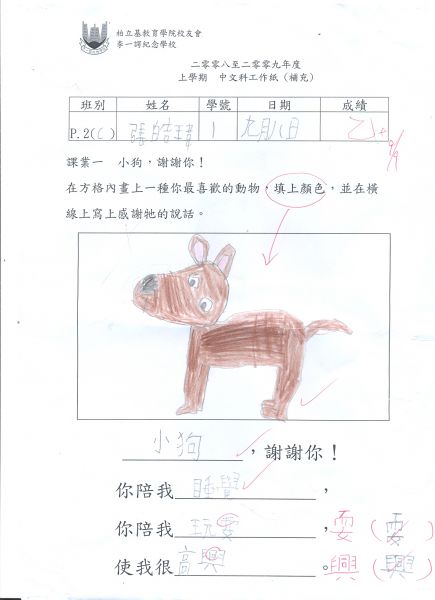 柏立基教育學院校友會
李一諤紀念學校
二零零八至二零零九年度
上學期 中文科工作紙（補充）
班別 姓名 學號 日期 成績
P.2(C) 張皓瑋 1 九月八日 乙+
9/9
課業一 小狗，謝謝你！
在方格內畫上一種你最喜歡的動物，填上顏色，並在橫
線上寫上感謝牠的說話。
小狗，謝謝你！
你陪我睡覺，
你陪我玩耍，耍（耍）
使我很高興。興（興）